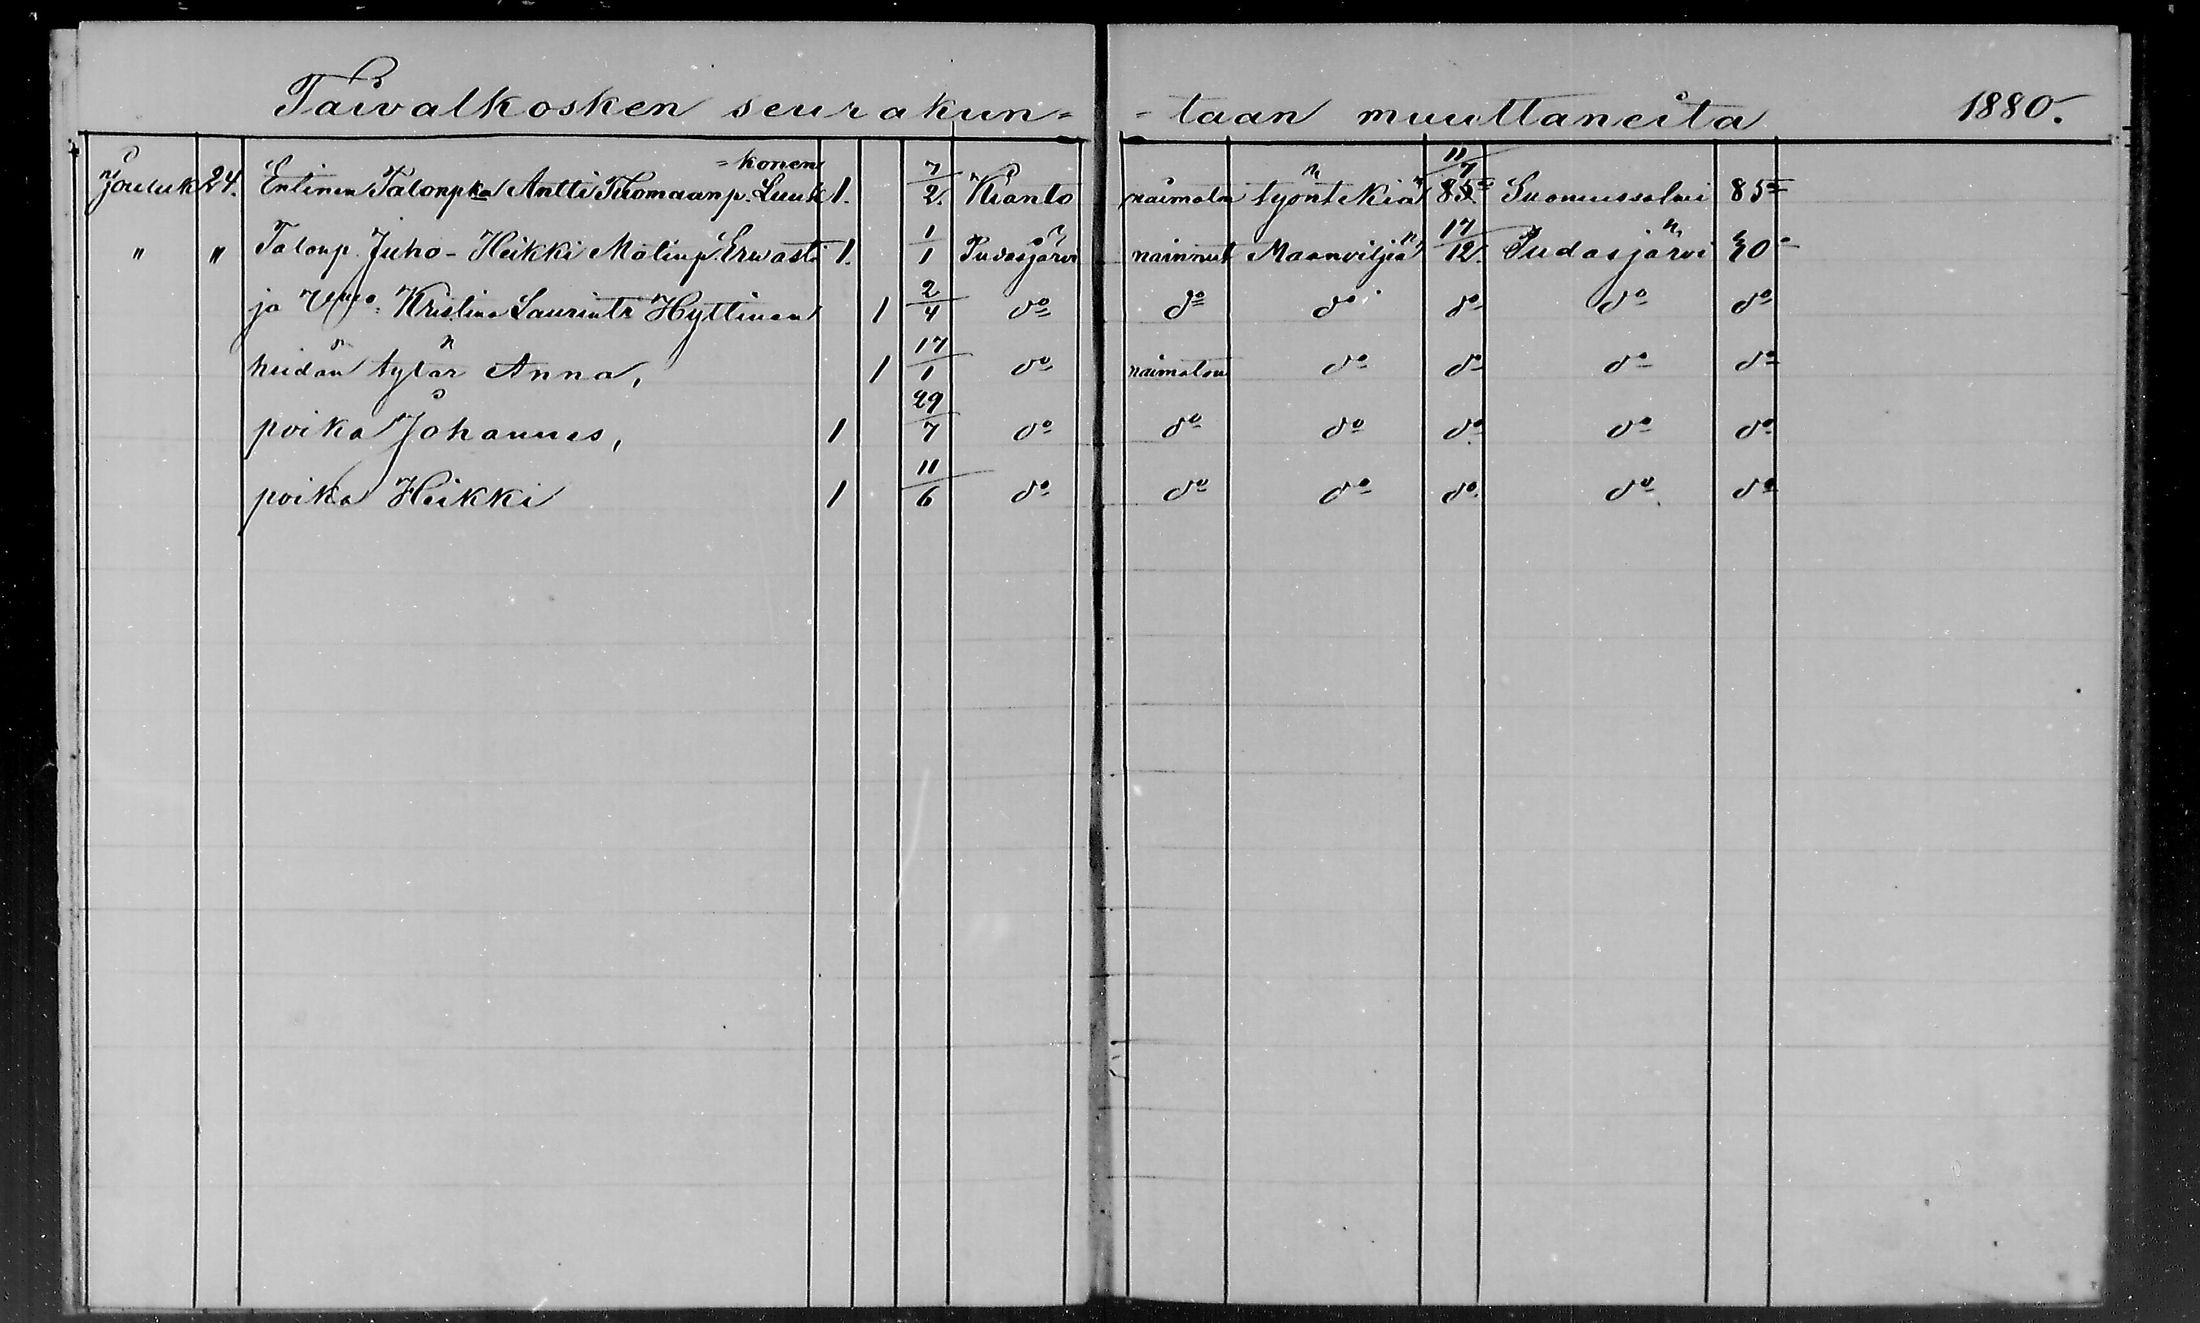 Taivalkosken seurakun- -taan muuttaneita 1880.
-konen
Jouluk 24. Entinen Talonpka Antti Thomaanp. Luuk 1. 7/2. Kianto naimaton työntekiä 11/7 85 Suomussalmi 85
" " Talonp. Juho-Heikki Matinp. Erwasti 1. 1/1 Pudasjärvi nainnut Maanviljiä 17/12. Pudasjärvi 70
ja Vmo. Kristina Laurintr Hyttinen 1 2/4 do do do do do do
heidän tytär Anna, 1 17/1 do naimaton do do do do
poika Johannes, 1 29/7 do do do do do do
poika Heikki 1 11/6 do do do do do do